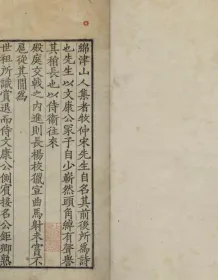 綿津山人集者牧仲宋先生自名其前後所爲詩
也先生以文康公冢子自少嶄然頭角綽有聲譽
其稍長也以侍衛往來
殿庭交戟之內進則長楊校獵宣曲馬射未嘗不
扈從其間爲
世祖所識賞退而侍文康公側賓接名公鉅卿熟